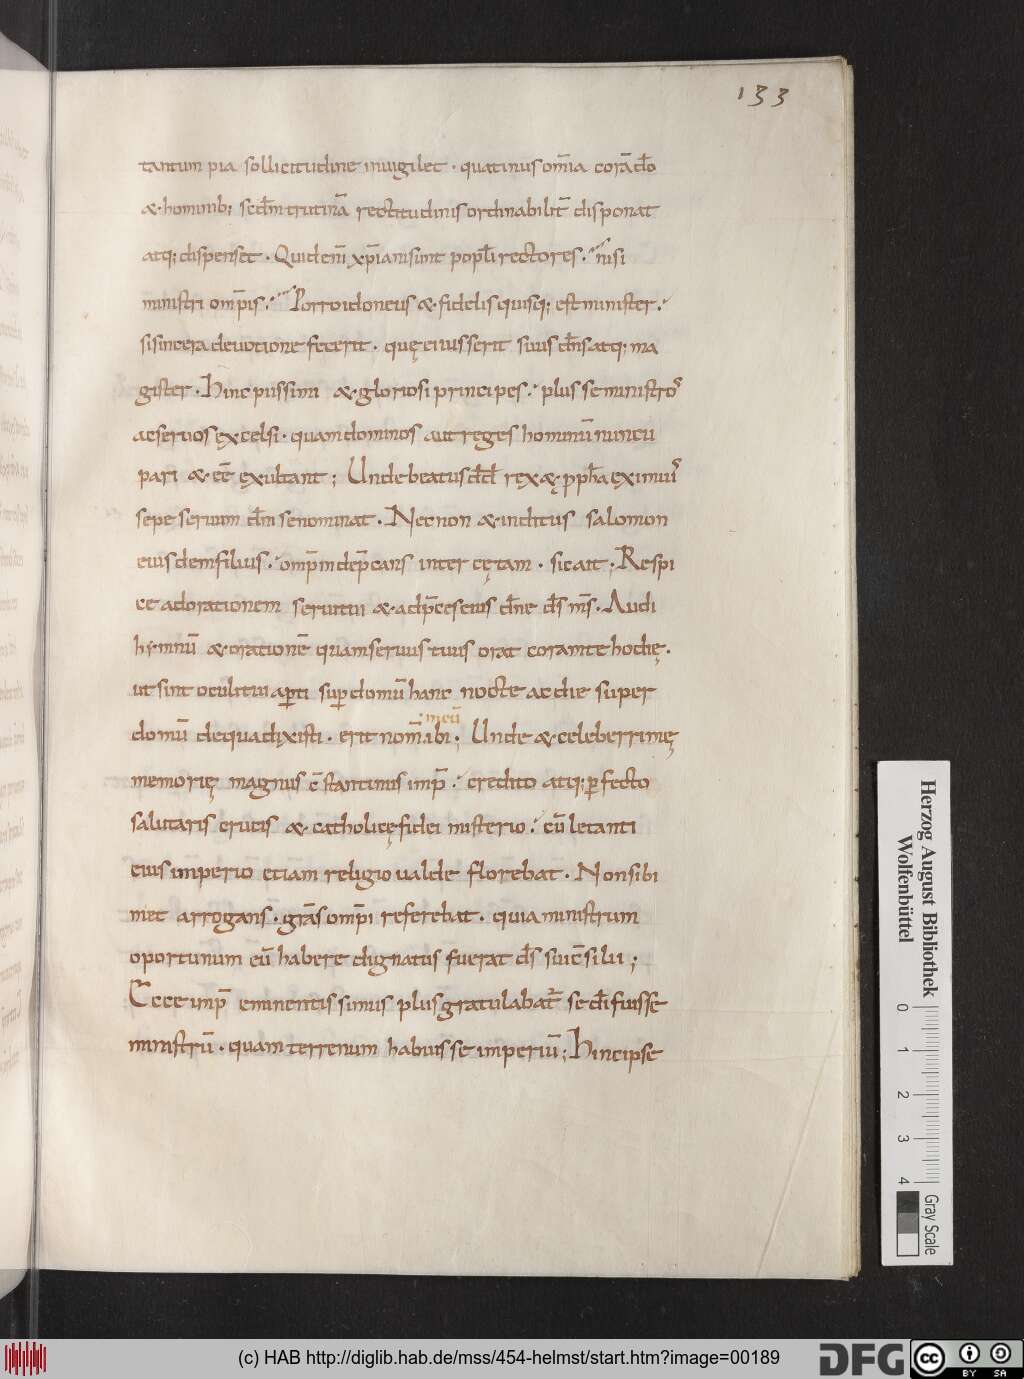 133
tantum pia sollicitudine inuigilet · quatinus om̄ia corā dō
& hominib; scd̄m trutinā rectitudinis ordinabilit̄ disponat
atq; dispenset · Quid enī xp̄iani sunt popl̄i rectores · nisi
ministri omp̄is · Porro idoneus & fidelis quisq; est minister ·
si sincera deuotione fecerit · quę ei iusserit suus dn̄s atq; ma
gister · Hinc piissimi & gloriosi principes · plus se ministros
ac seruos excelsi · quam dominos aut reges hominū nuncu
pari & eē exultant ; Unde beatus dd̄ rex & pph̄a eximius
sepe seruum dn̄i se nominat · Nec non & inclitus salomon
eiusdem filius · omp̄m dep̄cans inter cętam · sic ait · Respi
ce ad orationem serui tui & ad p̄ces eius dn̄e ds̄ ms̄ · Audi
hymnū & orationē quam seruus tuus orat coram te hodię ·
ut sint oculi tui aꝑti suꝑ domū hanc nocte ac die super
meū
domū de qua dixisti · erit nom̄ ibi ; Unde & celeberrimę
memorię magnus c̄stantinus imp̄ · credito atq; ꝑfecto
salutaris crucis & catholicę fidei misterio · cū letanti
eius imperio etiam religio ualde florebat · Non sibi
met arrogans · grās omp̄i referebat · quia ministrum
oportunum eū habere dignatus fuerat ds̄ sui c̄silii ;
Ecce imp̄ eminentissimus plus gratulabat̄ se dī fuisse
ministrū · quam terrenum habuisse imperiū ; Hinc ipse
Herzog August Bibliothek
Wolfenbüttel
0 1 2 3 4
Gray Scale
(c) HAB http://diglib.hab.de/mss/454-helmst/start.htm?image=00189
DFG
cc BY SA